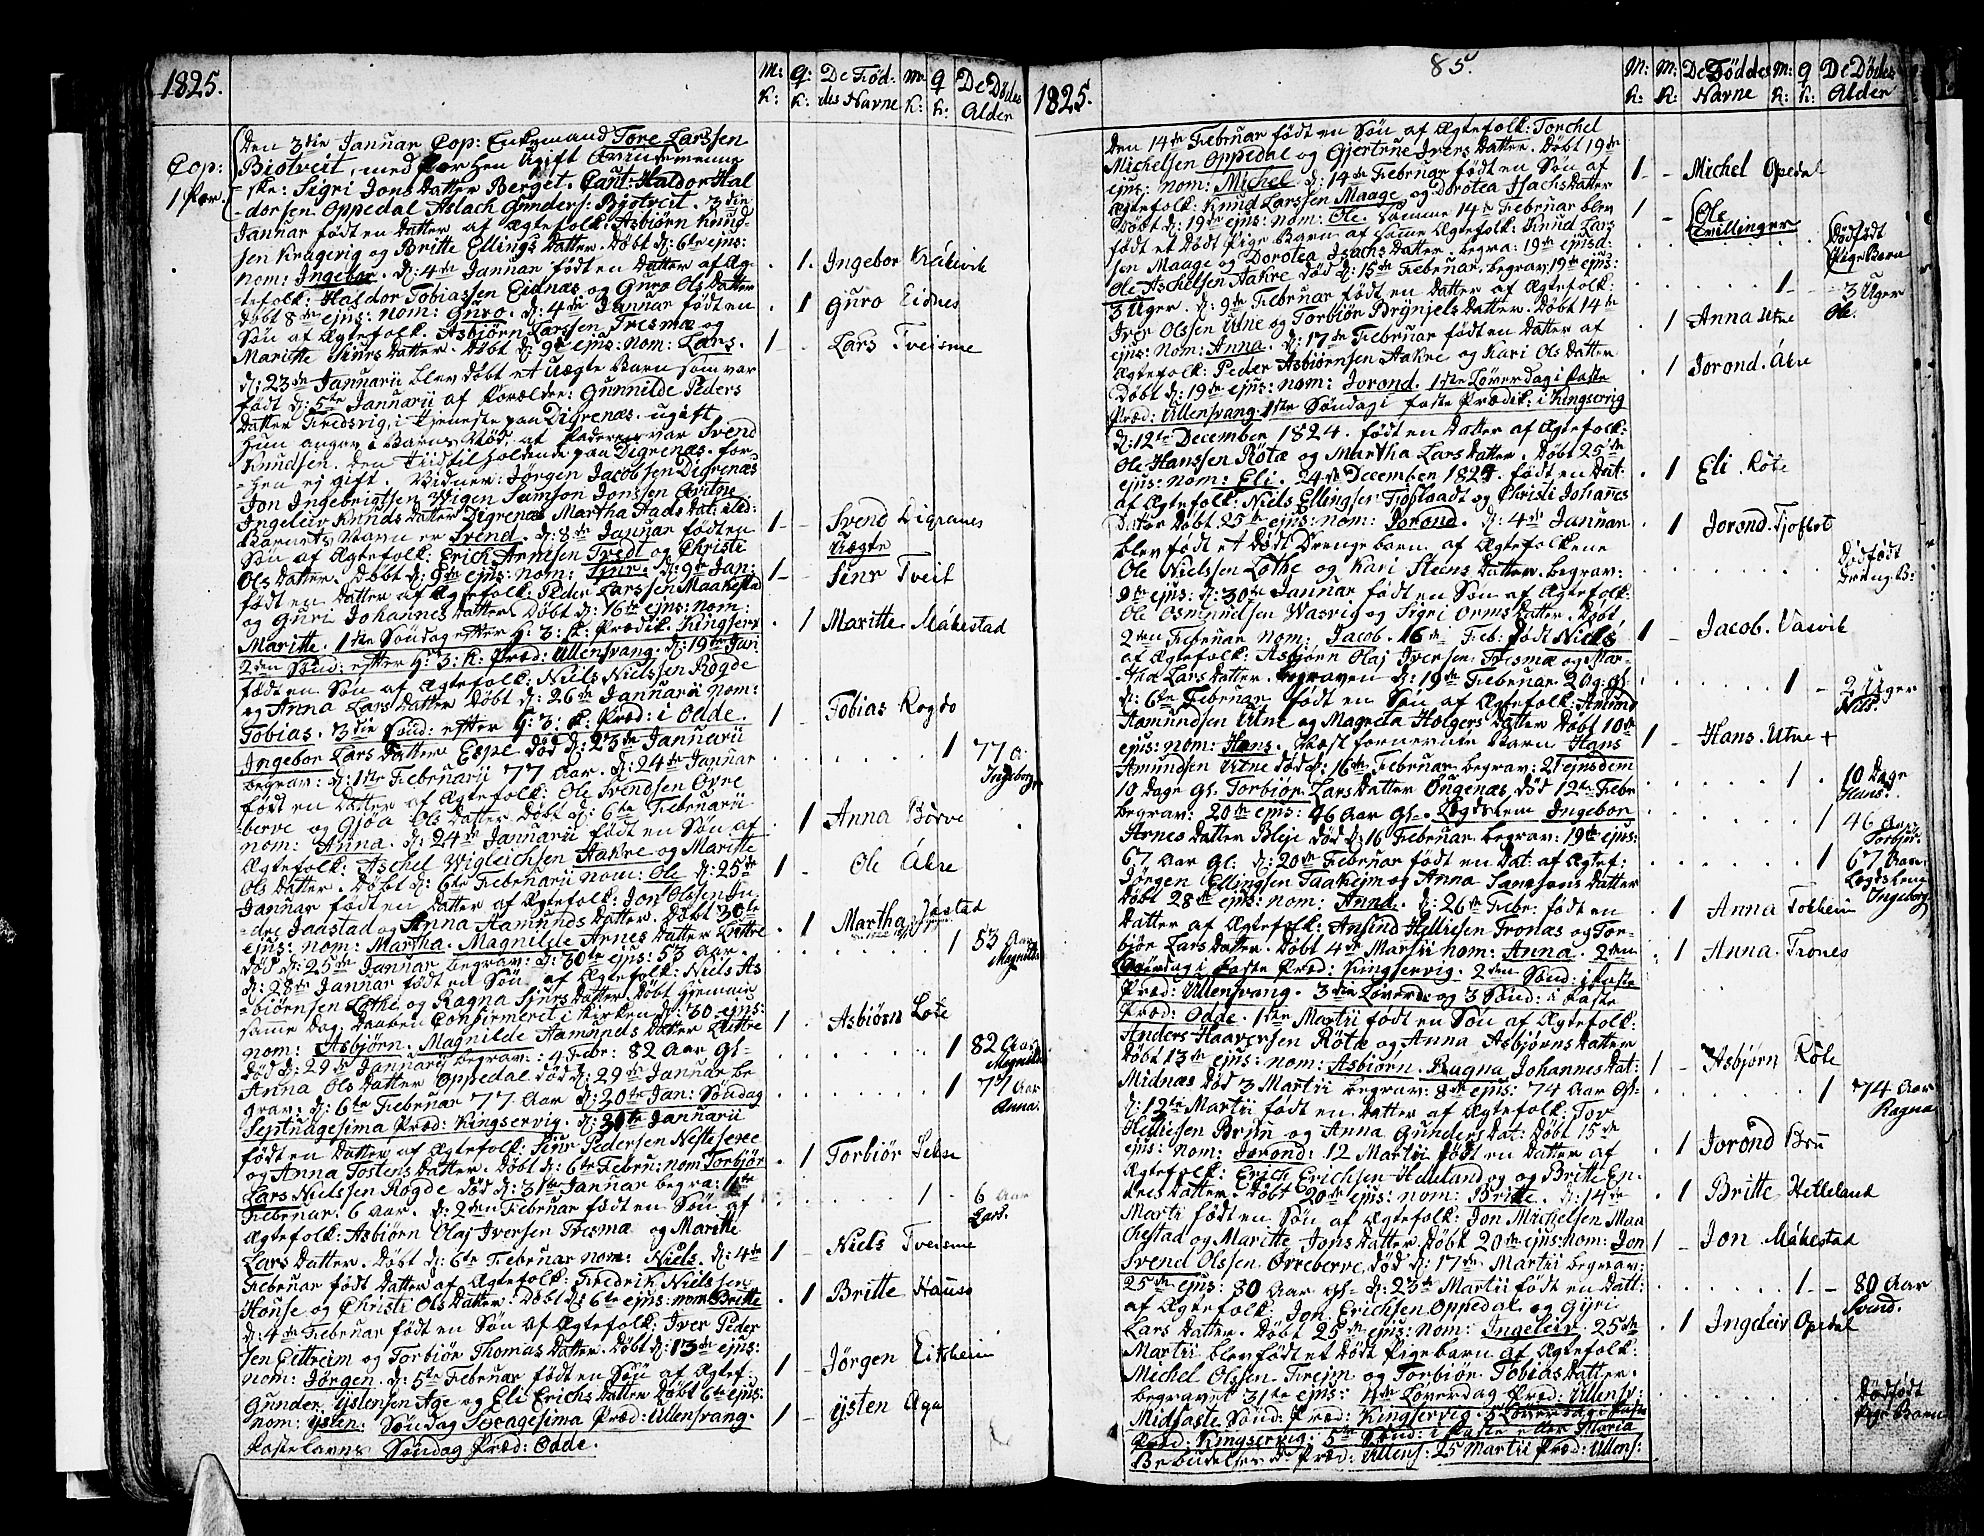 1825.
M: K:
Q: K:
De Fød- des Navne
M K:
Q K:
De Dødes Alder
Cop:
1 Par.
Den 3die Januar Cop: Enkemand Tore Larssen
Biotveit, med forhen ugift Qvindemenne
-ske: Sigri Jons Datter Berget. Caut: Haldor Hal
-dorsen Oppedal Aslach Gunders: Biotveit. 3die
Januar født en Datter af Ægtefolk: Asbiørn Knud-
sen Kragevig og Britte Ellings Datter. Døbt d: 6te ejus:
nom: Ingebor. d: 4de Januar født en Datter af Æg-
-tefolk: Haldor Tobiassen Eidnæs og Guro Ols Datter
Døbt 8de ejus: nom: Guro. d: 4de Januar født en
Søn af Ægtefolk: Asbjørn Larssen Tresmæ og
Maritte Siurs Datter. Døbt d: 9de ejus: nom: Lars.
d: 23de Januarii blev døbt et Uægte Barn som var
født d: 5te Januarii af Forælder: Gunnilde Peders
Datter Fredsvig, i Tjeneste paa Digrenæs. ugift
Hun angav i Barns Nød, at Faderen var Svend
Knudsen. den Tiid tilholdende paa Digrenæs. for-
-hen ej gift. Vidner: Jørgen Jacobsen Digrenæs
Jon Ingebrigtsen Wigen Samson Jonssen
Ingeleiv Knuds Datter Digrenæs Martha
Barnets Navn er Svend. d: 8de Januar født en
Søn af Ægtefolk: Erich Arnesen Tredt og Christi
Ols Datter. Døbt d: 9de ejus: nom: Siur. d: 9de Jan:
født en Datter af Ægtefolk: Peder Larssen Maakestad
og Guri Johannes Datter Døbt d: 16te ejus: nom:
Maritte. 1ste Søndag efter H: 3: K: Prædik: Kingserv
2den Sønd: efter H: 3: K: Præd: Ullensvang. d: 19de Jan
født en Søn af Ægtefolk: Niels Nielssen Rogde
og Anna Lars Datter Døbt d: 26de Januarii nom:
Tobias. 3die Sønd: efter H: 3: K: Præd: i Odde.
Ingebor Lars Datter Espe. død d: 23de Januarii
begrav: d: 1ste Februarii 77 Aar. d: 24de Januar
født en Datter af Ægtefolk: Ole Svendsen Øvre
-berve og Gjøa Ols Datter Døbt d: 6te Februarii
nom: Anna. d: 24de Januarii født en Søn af
Ægtefolk: Aschel Wigleichsen Aakre og Maritte
Ols Datter. Døbt d: 6te Februarii nom: Ole d: 25de
Januar født en Datter af Ægtefolk: Jon Olssen In-
-dre Jaastad og Anna Aamunds Datter. Døbt 30te
ejus: nom: Martha. Magnilde Arnes Datter Luttre
død d: 25de Januar begrav: d: 30te ejus: 53 Aar.
d: 28de Januar født en Søn af Ægtefolk: Niels As
-biørnsen Lothe og Ragna Siurs Datter. Døbt hjemme
samme Dag, Daaben Confirmerit i Kirken d: 30 ejus:
nom: Asbjørn. Magnilde Aamunds Datter Luttre
død d: 29de Januarij begrav: 4 Febr: 82 Aar Gl-
Anna Ols Datter Oppedal død d: 29de Januar be
grav: d: 6te Februar 77 Aar d: 20te Jan: Søndag
Septuagesima Præd: Kingservig. d: 30te Januarii
født en Datter af Ægtefolk: Siur Pedersen Nesteserre
og Anna Tostens Datter. Døbt d: 6te Febru: nom Torbjør
Lars Nielssen Rogde død d: 31te Januar begra: 11te
Februar. 6 Aar. d: 2den Februar født en Søn af
Ægtefolk: Asbiørn Olaj Iversen Tresmæ og Maritte
Lars Datter. Døbt d: 6te Februar nom: Niels. d: 4de
Februar født Datter af Ægtefolk: Fredrik Nielssen
Honse og Christi Ols Datter: Døbt d: 6te ejus: nom Britte
d: 4de Februar født en Søn af Ægtefolk: Iver Peder
sen Eittreim og Torbiør Thomas Datter. Døbt d: 13de ejus:
nom: Jørgen. d: 5te Februar født en Søn af Ægtef.
Gunder Ystensen Age og Eli Erichs Datter Døbt 6te ejus:
nom: Ysten. Søndag Sexagesima Præd: Ullensvang.
Fastelavns Søndag Præd: Odde.
1. Ingebor Kråkevik
1 Guro Eidnes
1 Lars Tveisme
1 Svend Digranes
Uægte
1 Siur Tveit
1 Maritte Måkestad
1 Tobias Rogdo
1 77 A. Ingeborg
1 Anna Børve
1 Ole Åkre
1 Martha Jåstad
1 53 Aar Magnilde
1 Asbiørn Lote
1 82 Aar Magnilde
1 77 Aar Anna.
1 Torbiør Sekse
1 6 Aar Lars.
1 Niels Tveisme
1 Britte Hauso
1 Jørgen Eitrheim
1 Ysten Aga
1825.
85.
M: K:
M: K:
De Føddes Navne
M: K:
Q K:
De Dødes Alder
Den 14de Februar født en Søn af Ægtefolk: Torchel
Michelsen Oppedal og Gjertrue Ivers Datter. Døbt 19de
ejus: nom: Michel. d: 14de Februar født en Søn af
Ægtefolk: Knud Larssen Maage og Dorotea Isachs Datter
Døbt d: 19de ejus: nom: Ole. Samme 14de Februar blev
født et Dødt Pige Barn af samme Ægtefolk: Knud Lars
sen Maage og Dorotea Isachs Datter begra: 19de ejusd:
Ole Aschelsen Aakre død d: 15de Februar. begrav: 19de ejus:
3 Uger. d: 9de Februar født en Datter af Ægtefolk:
Iver Olssen Utne og Torbiør Brynjels Datter. Døbt 14de
ejus: nom: Anna. d: 17de Februar født en Datter af
Ægtefolk: Peder Asbiørnsen Aakre og Kari Ols Datter
Døbt d: 19de ejus: nom: Jorond. 1ste Løverdag i Faste
Præd: Ullensvang 1ste Søndag i Faste Prædik: i Kingservig
d: 12te December 1824. født en Datter af Ægtefolk:
Ole Hanssen Røtæ og Martha Lars Datter. Døbt 25de
ejus: nom: Eli. 24de December 1824. født en Dat:
af Ægtefolk: Niels Ellingsen Tioflaadt og Christi Johannes
Datter Døbt 25de ejus: nom: Jorond. d: 4de Januar
blev født et Dødt Drengebarn af Ægtefolkene
Ole Nielssen Lothe og Kari Steens Datter. begrav:
9de ejus: d: 30te Januar født en Søn af Ægtefolk:
Ole Osmundsen Wasvig og Sigri Orms Datter. Døbt
2den Februar nom: Jacob. 16de Feb: Død Niels,
af Ægtefolk: Asbjørn Olaj Iversen Tresmæ og Mar-
-the Lars Datter. begraven d: 19de Februar. 2 Ug: gl:
d: 6te Februar født en Søn af Ægtefolk: Amund
Aamundsen Utne og Magreta Holgers Datter Døbt 10de
ejus: nom: Hans. Næst fornevnte Barn Hans
Amundsen Utne død d: 16de Februar begrav: 21 ejusdem
10 Dage gl. Torbiør Lars Datter Ongenæs, død 12te Febr
begrav: 20te ejus: 46 Aar Gl- Legdslem Ingebor
Arnes Datter Bleje død d: 16 Februar begrav: 19de ejus:
67 Aar Gl: d: 20de Februar født en Dat: af Ægtef:
Jørgen Ellingsen Taakeim og Anna Samsons Datter
Døbt 28de ejus: nom: Anna. d: 26de Febr: født en
Datter af Ægtefolk: Ansind Hellesen Tronæs og Tor-
biør Lars Datter. Døbt 4de Martii nom: Anna. 2den
Løverdag i Faste Præd: Kingservig. 2den Sønd: i Faste
Præd: Ullensvang. 3die Løverd: og 3 Sønd: i Faste
Præd: Odde. 1ste Martii født en Søn af Ægtefolk:
Anders Haaversen Røtæ og Anna Asbjørns Datter
Døbt 13de ejus: nom: Asbiørn. Ragna Johannes Dat:
Midnæs død 3 Martii begrav: 8de ejus: 74 Aar Gl-
d: 12te Martii født en Datter af Ægtefolk: Tor
Hellesen Bruu og Anna Gunders Dat: Døbt 15de
ejus: nom: Jorond: 12 Martii født en Datter af
Ægtefolk: Erich Erichsen Heleland og Britte En-
dres Datter. Døbt 20de ejus: nom: Britte. d: 14de
Marti født en Søn af Ægtefolk: Jon Michelsen Maa
chestad og Maritte Jons Datter Døbt 20de ejus: nom: Jon
Svend Olssen Øvreberve, død d: 17de Martii begrav:
25de ejus: 80 Aar Gl- d: 23de Martii født en Datt:
af Ægtefolk: Jon Erichsen Oppedal og Gyri
Lars Datter. Døbt 25de ejus: nom: Ingeleiv. 25de
Martii blev født et Dødt Pigebarn af Ægtefolk:
Michel Olssen Freim og Torbiør Tobias Datter.
begravet 31te ejus: 4de Løverdag Præd: Ullensv:
Midfaste Sønd: Præd: Kingservig. 5 Løverdag i Faste
Præd: Kingservig: 5te Sønd: i Faste eller Maria
Bebudelses D: Præd: Ullens: 25 Martii Præd: Ullens:
1 Michel Opedal
1 Ole
Tvillinger
Dødfødt Pige Barn
1 3 Uger Ole.
1 Anna Utne
1 Jorond. Åkre
1 Eli Røte
1 Jorond. Tjoflot
Dødfødt Dreng. B:
1 Jacob. Vasvik
1 2 Uger Nils.
1 Hans. Utne +
1 10 Dage Hans.
1 46 Aar Torbjør.
1 67 Aar Legdslem Ingeborg
1 Anna Tokheim
1 Anna. Trones
1 Asbjørn Røte
1 74 Aar Ragna
1 Jorond Bru
1 Britte Helleland
1 Jon Måkestad
1 80 Aar Svend.
1 Ingeleiv Opedal
Dødfødt Pige Barn